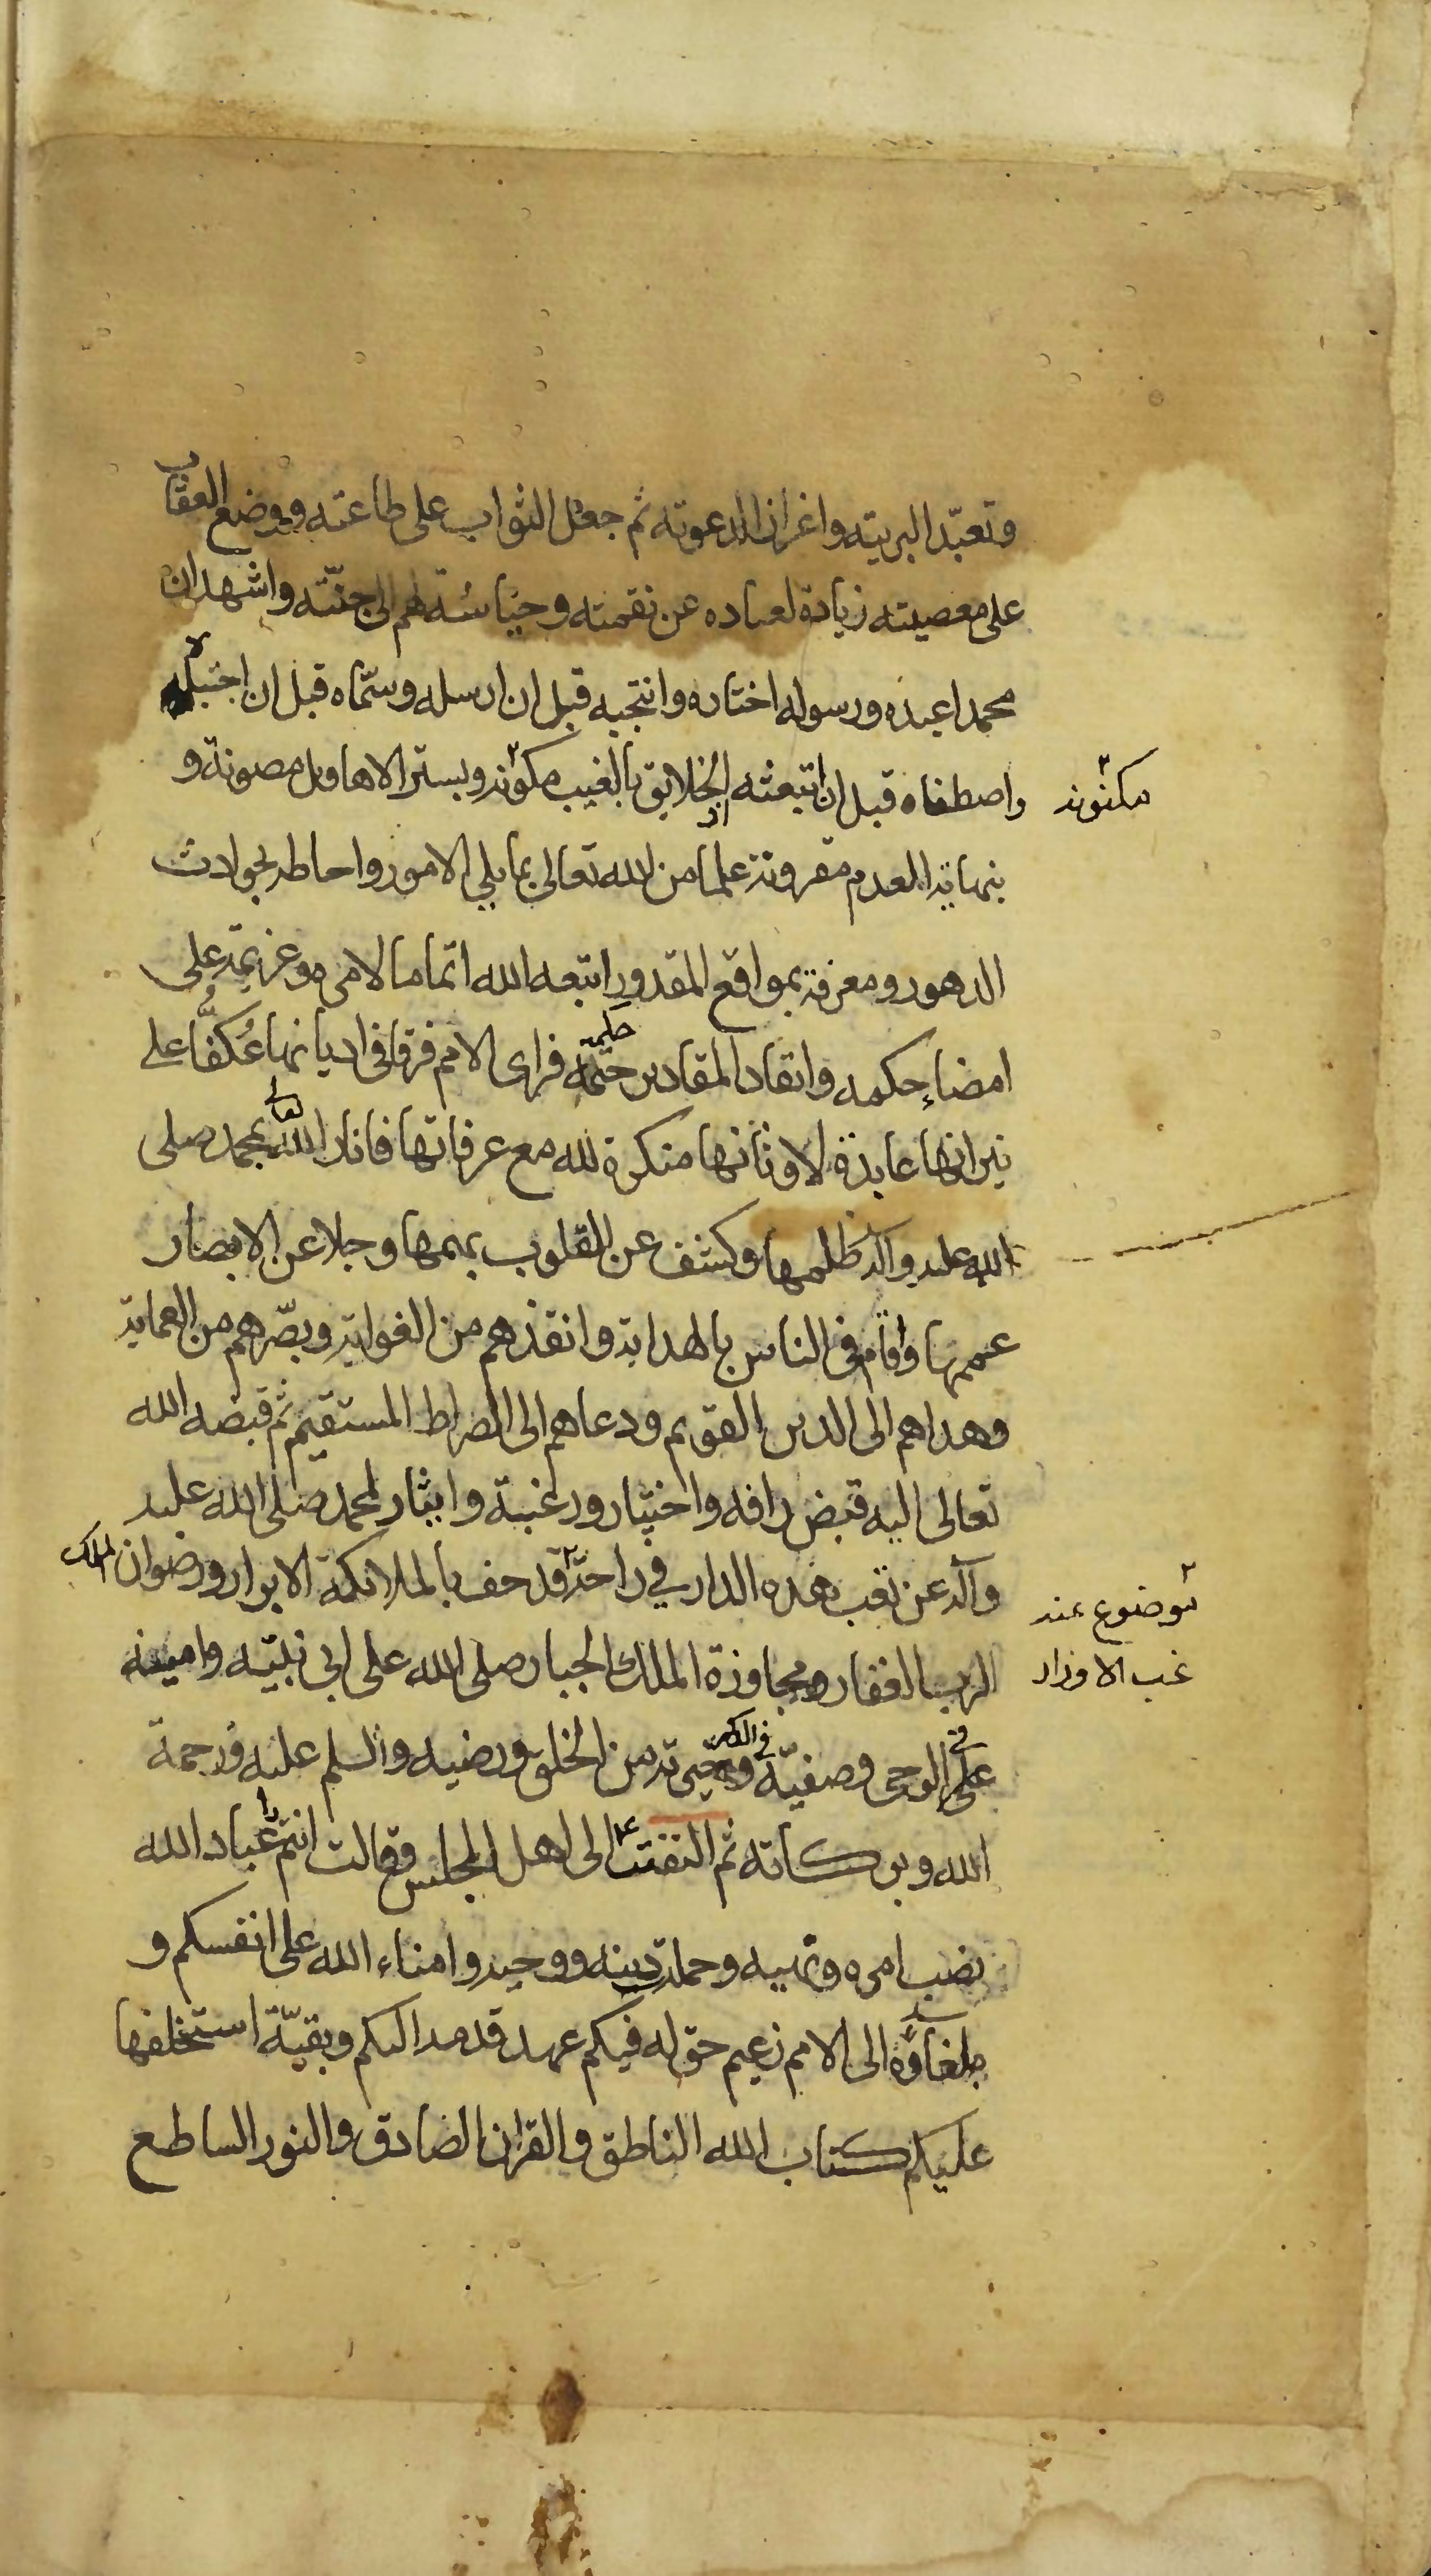 وتعبّد البريته واغرازا لدعوته ثم جعل الثواب على طاعته ووضع العقاب
على معصيته زيادة لعباده عن نقمته وحياشة لهم الى جنّته واشهد ان
محمدا عبده ورسوله اختاره وانتجبه قبل ان ارسله وسمّاه قبل ان اجتبله
واصطفاه قبل ان ابتعثه اذ الخلايق بالغيب مكنونة وبستر الاهاويل مصونة و
مكنونه
بنهاية العدم مقرونة علما من الله تعالى بما يلي الامور واحاطه بحوادث
الدهور ومعرفة بمواقع المقدور ابتعه الله اتماما لامره وعزيمة على
امضاء حكمه وانفاد المقادير حتمه فراى الامم فرقا في اديانها عُكّفا على
حكمه
نيرانها عابدة لاوثانها منكرة لله مع عرفانها فانار الله تعالى بمحمد صلى
الله عليه وآله ظلمها وكشف عن القلوب بهمها وجلا عن الابصار
عمهها وقام في الناس بالهداية وانقذهم من الغواية وبصّرهم من العماية
وهداهم الى الدين القويم ودعاهم الى الصراط المستقيم ثم قبضه الله
تعالى اليه قبض رافه واختيار ورغبة وايثار لمحمد صلى الله عليه
وآله عن تعب هذه الدار في راحة قد حف بالملائكة الابرار ورضوان الملك
موضوع عنه
عب الاوزار
الرب الغفار ومجاورة الملك الجبار صلى الله على ابي نبيّه وامينه
على الوحي وصفيّه في الذكر وخيرته من الخلق ورضيه والسلم عليه ورحمة
الله وبركاته ثم التفتت الى اهل المجلس وقالت انتم عباد الله
نصب امره ونهيه وحملة دينه ووحيه وامناء الله على انفسكم و
بلغاؤه الى الامم زعيم حق له فيكم عهد قدمه اليكم وبقيّة استخلفها
عليكم كتاب الله الناطق والقران الصادق والنور الساطع